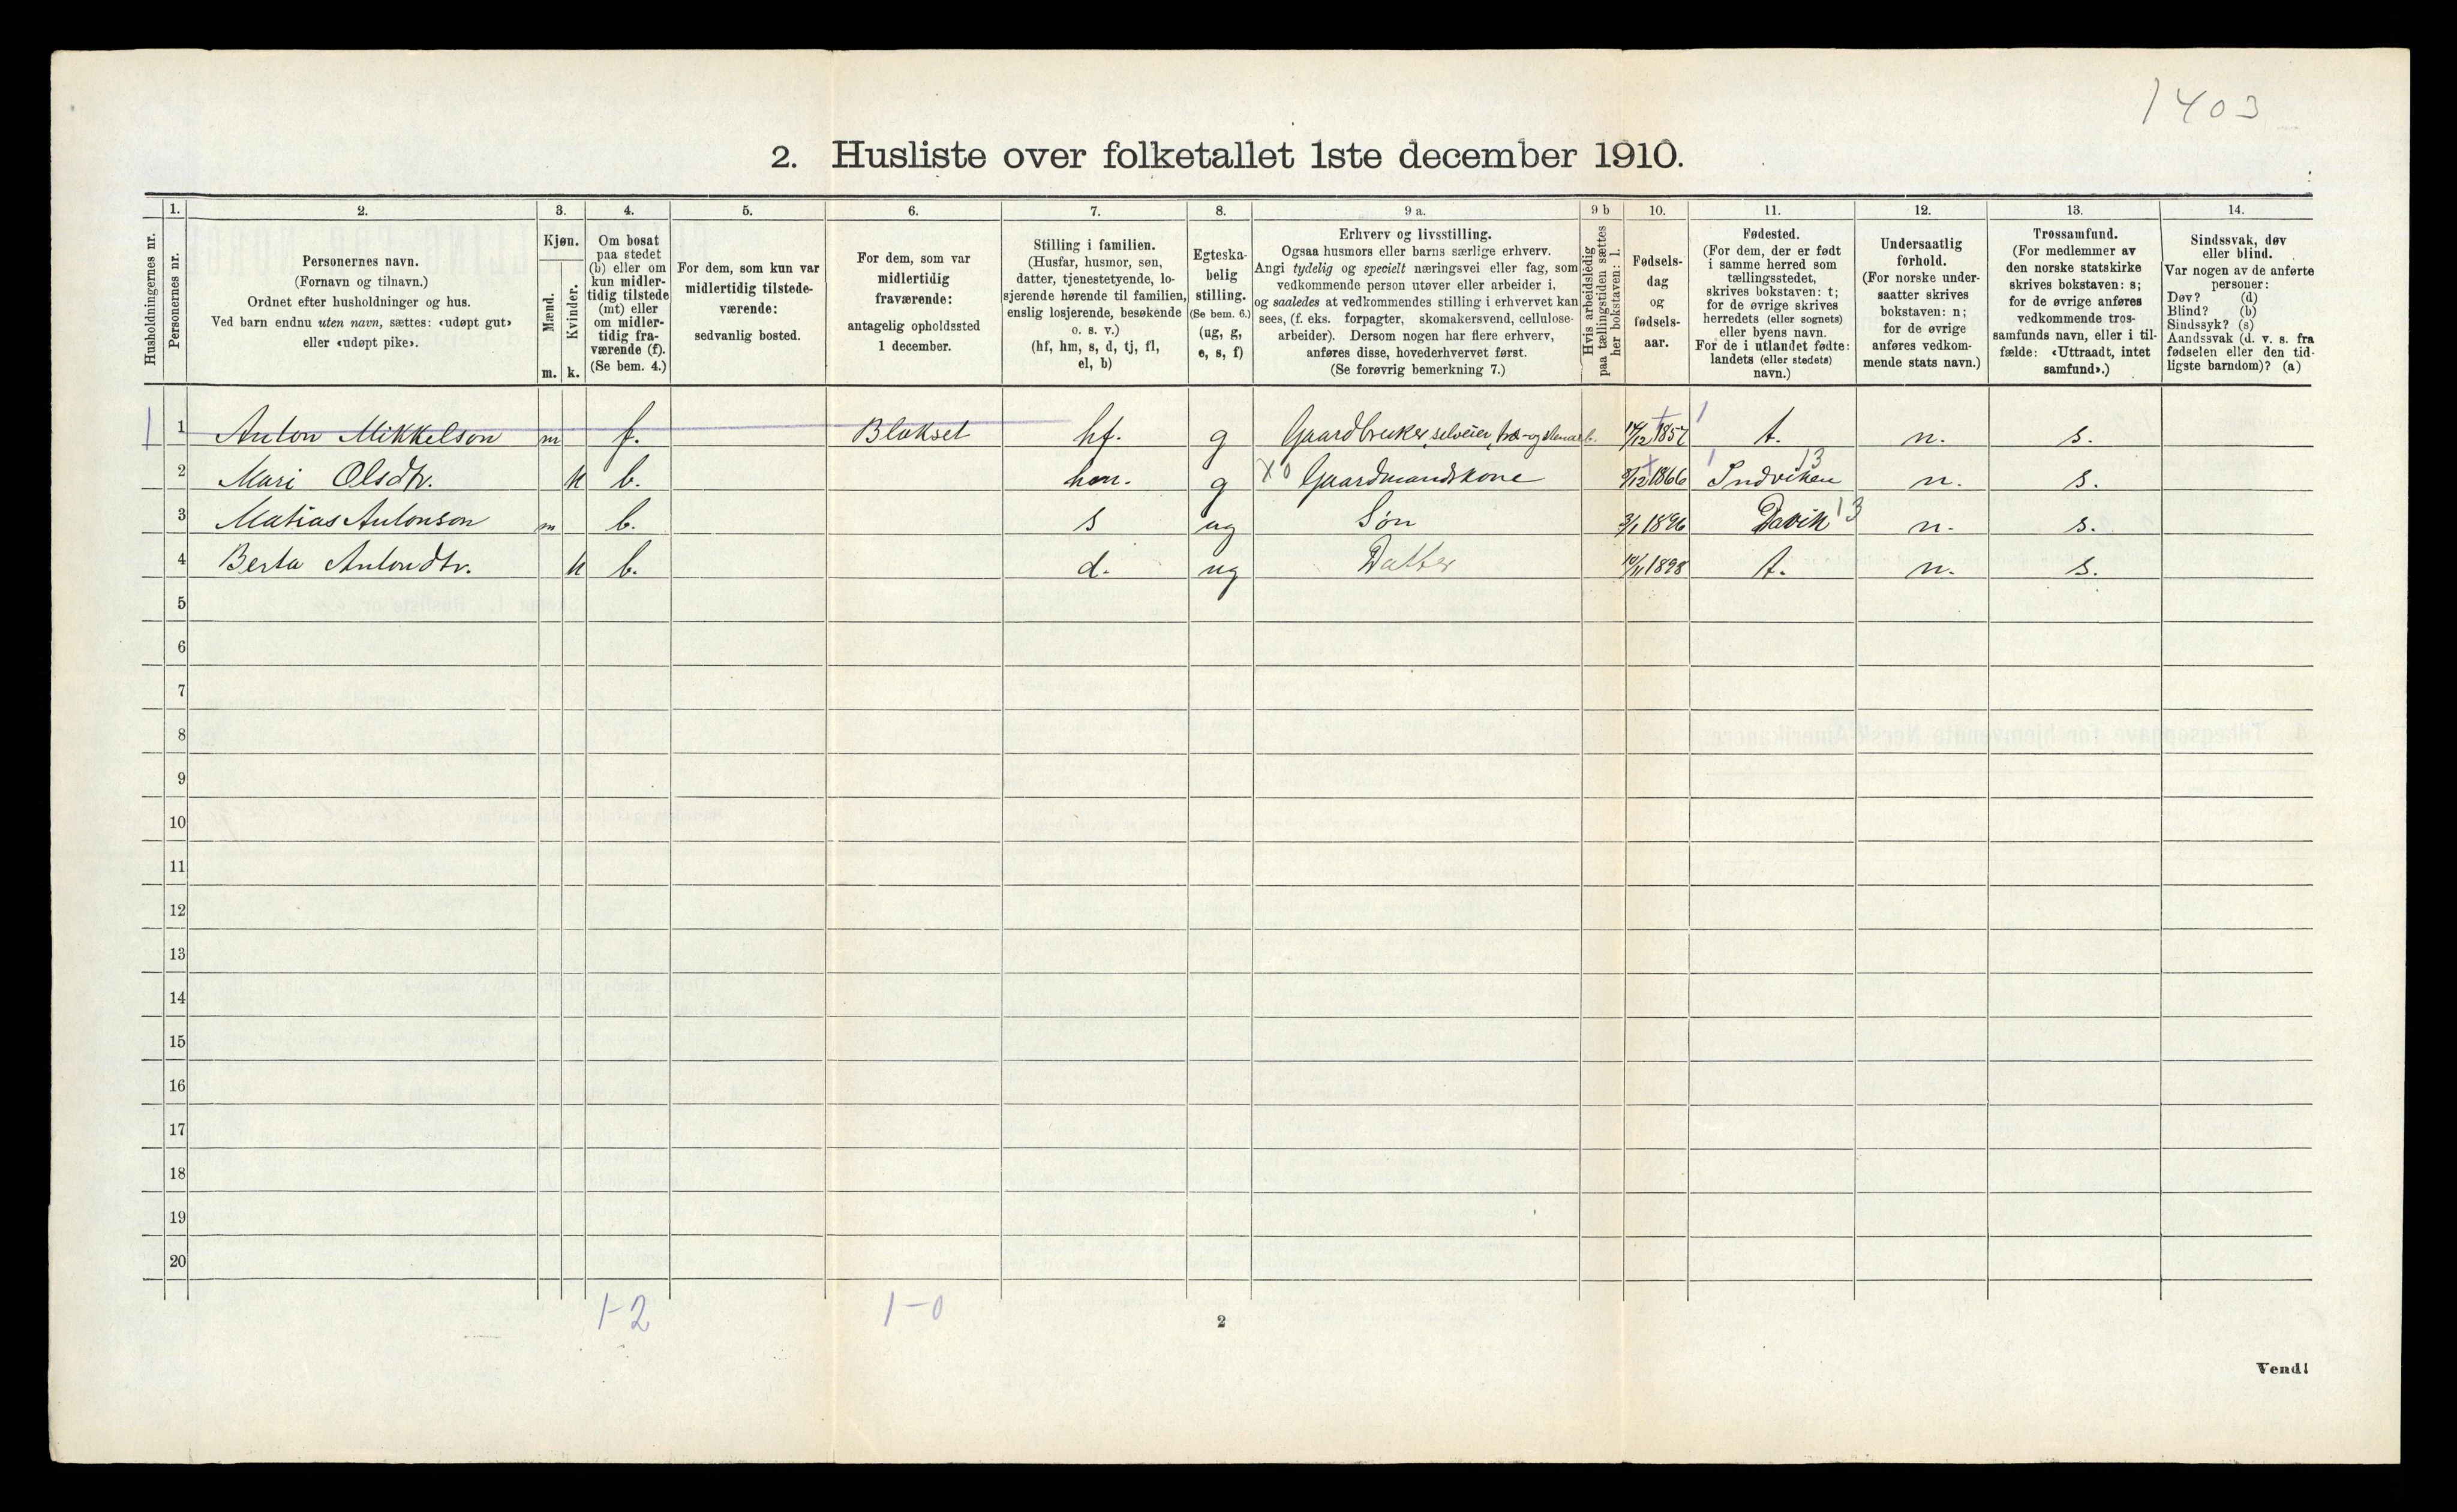 1403
2. Husliste over folketallet 1ste december 1910.
Husholdningernes nr.
1.
Personernes nr.
2.
Personernes navn.
(Fornavn og tilnavn.)
Ordnet efter husholdninger og hus.
Ved barn endnu uten navn, sættes: «udøpt gut»
eller «udøpt pike».
3.
Kjøn.
Mænd.
Kvinder.
m. k.
4.
Om bosat
paa stedet
(b) eller om
kun midler-
tidig tilstede
(mt) eller
om midler-
tidig fra-
værende (f).
(Se bem. 4.)
5.
For dem, som kun var
midlertidig tilstede-
værende:
sedvanlig bosted.
6.
For dem, som var
midlertidig
fraværende:
antagelig opholdssted
1 december.
7.
Stilling i familien.
(Husfar, husmor, søn,
datter, tjenestetyende, lo-
sjerende hørende til familien,
enslig losjerende, besøkende
o. s. v.)
(hf, hm, s, d, tj, fl,
el, b)
8.
Egteska-
belig
stilling.
(Se bem. 6.)
(ug, g,
e, s, f)
9 a.
Erhverv og livsstilling.
Ogsaa husmors eller barns særlige erhverv.
Angi tydelig og specielt næringsvei eller fag, som
vedkommende person utøver eller arbeider i,
og saaledes at vedkommendes stilling i erhvervet kan
sees, (f. eks. forpagter, skomakersvend, cellulose-
arbeider). Dersom nogen har flere erhverv,
anføres disse, hovederhvervet først.
(Se forøvrig bemerkning 7.)
9 b
Hvis arbeidsledig
paa tællingstiden sættes
her bokstaven: l.
10.
Fødsels-
dag
og
fødsels-
aar.
11.
Fødested.
(For dem, der er født
i samme herred som
tællingsstedet,
skrives bokstaven: t;
for de øvrige skrives
herredets (eller sognets)
eller byens navn.
For de i utlandet fødte:
landets (eller stedets)
navn.)
12.
Undersaatlig
forhold.
(For norske under-
saatter skrives
bokstaven: n;
for de øvrige
anføres vedkom-
mende stats navn.)
13.
Trossamfund.
(For medlemmer av
den norske statskirke
skrives bokstaven: s;
for de øvrige anføres
vedkommende tros-
samfunds navn, eller i til-
fælde: «Uttraadt, intet
samfund».)
14.
Sindssvak, døv
eller blind.
Var nogen av de anførte
personer:
Døv? (d)
Blind? (b)
Sindssyk? (s)
Aandssvak (d. v. s. fra
fødselen eller den tid-
ligste barndom)? (a)
1 Anton Mikkelson m f. Blakset hf. g Gaardbruker, selveier, 14/12 1857 t. n. s.
2 Mari Olsdtr. k b. hm. g X0 Gaardmandskone 1866 Indviken 13 n. s.
3 Matias Antonson m b. s ug Søn 3/1 1896 Davik 13 n. s.
4 Berta Antondtr. k b. d. ug Datter 10/11 1898 t. n. s.
5
6
7
8
9
10
11
12
13
14
15
16
17
18
19
20
1-2 1-0
2
Vend!